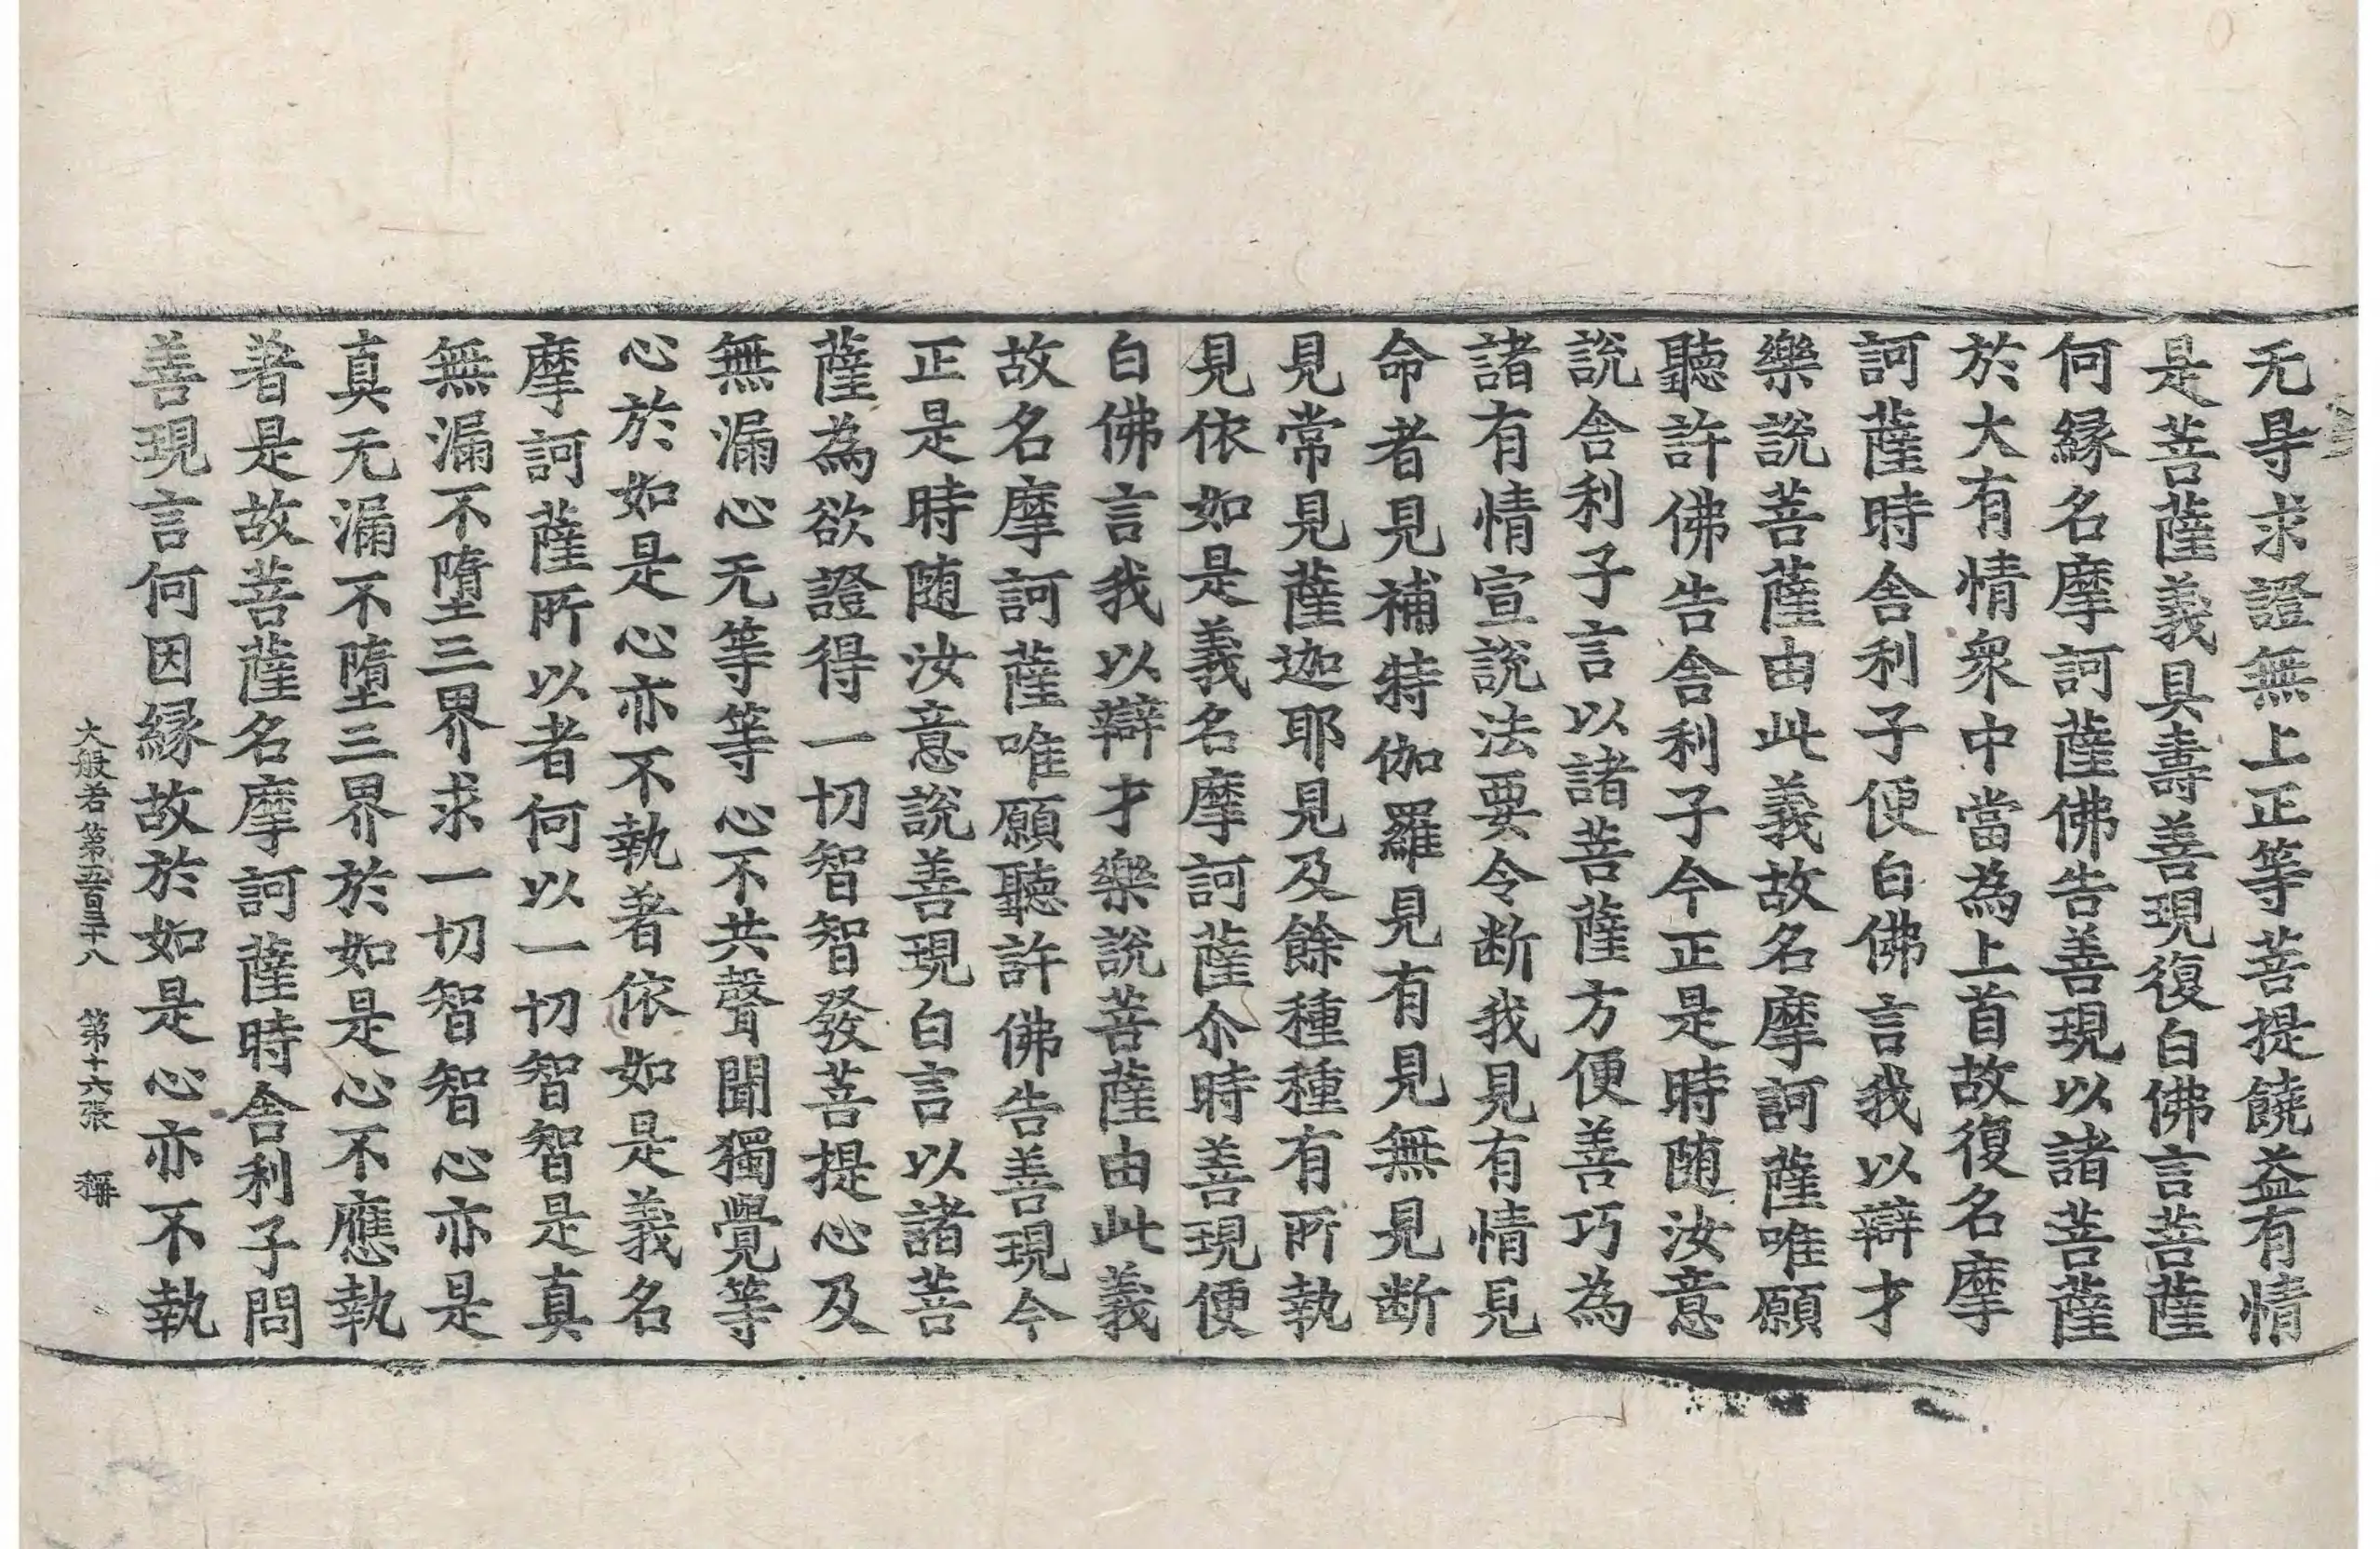 无㝵求證無上正等菩提饒益有情
是菩薩義具壽善現復白佛言菩薩
何縁名摩訶薩佛告善現以諸菩薩
於大有情衆中當為上首故復名摩
訶薩時舎利子便白佛言我以辯才
樂說菩薩由此義故名摩訶薩唯願
聽許佛告舎利子今正是時随汝意
說舎利子言以諸菩薩方便善巧為
諸有情宣說法要令断我見有情見
命者見補特伽羅見有見無見断
見常見薩迦耶見及餘種種有所執
見依如是義名摩訶薩尒時善現便
白佛言我以辯才樂說菩薩由此義
故名摩訶薩唯願聽許佛告善現今
正是時随汝意說善現白言以諸菩
薩為欲證得一切智智發菩提心及
無漏心无等等心不共聲聞獨覺等
心於如是心亦不執著依如是義名
摩訶薩所以者何以一切智智是真
無漏不墮三界求一切智智心亦是
真无漏不墮三界於如是心不應執
著是故菩薩名摩訶薩時舎利子問
善現言何因縁故於如是心亦不執
大般若第五百三十八 第十六張 稱